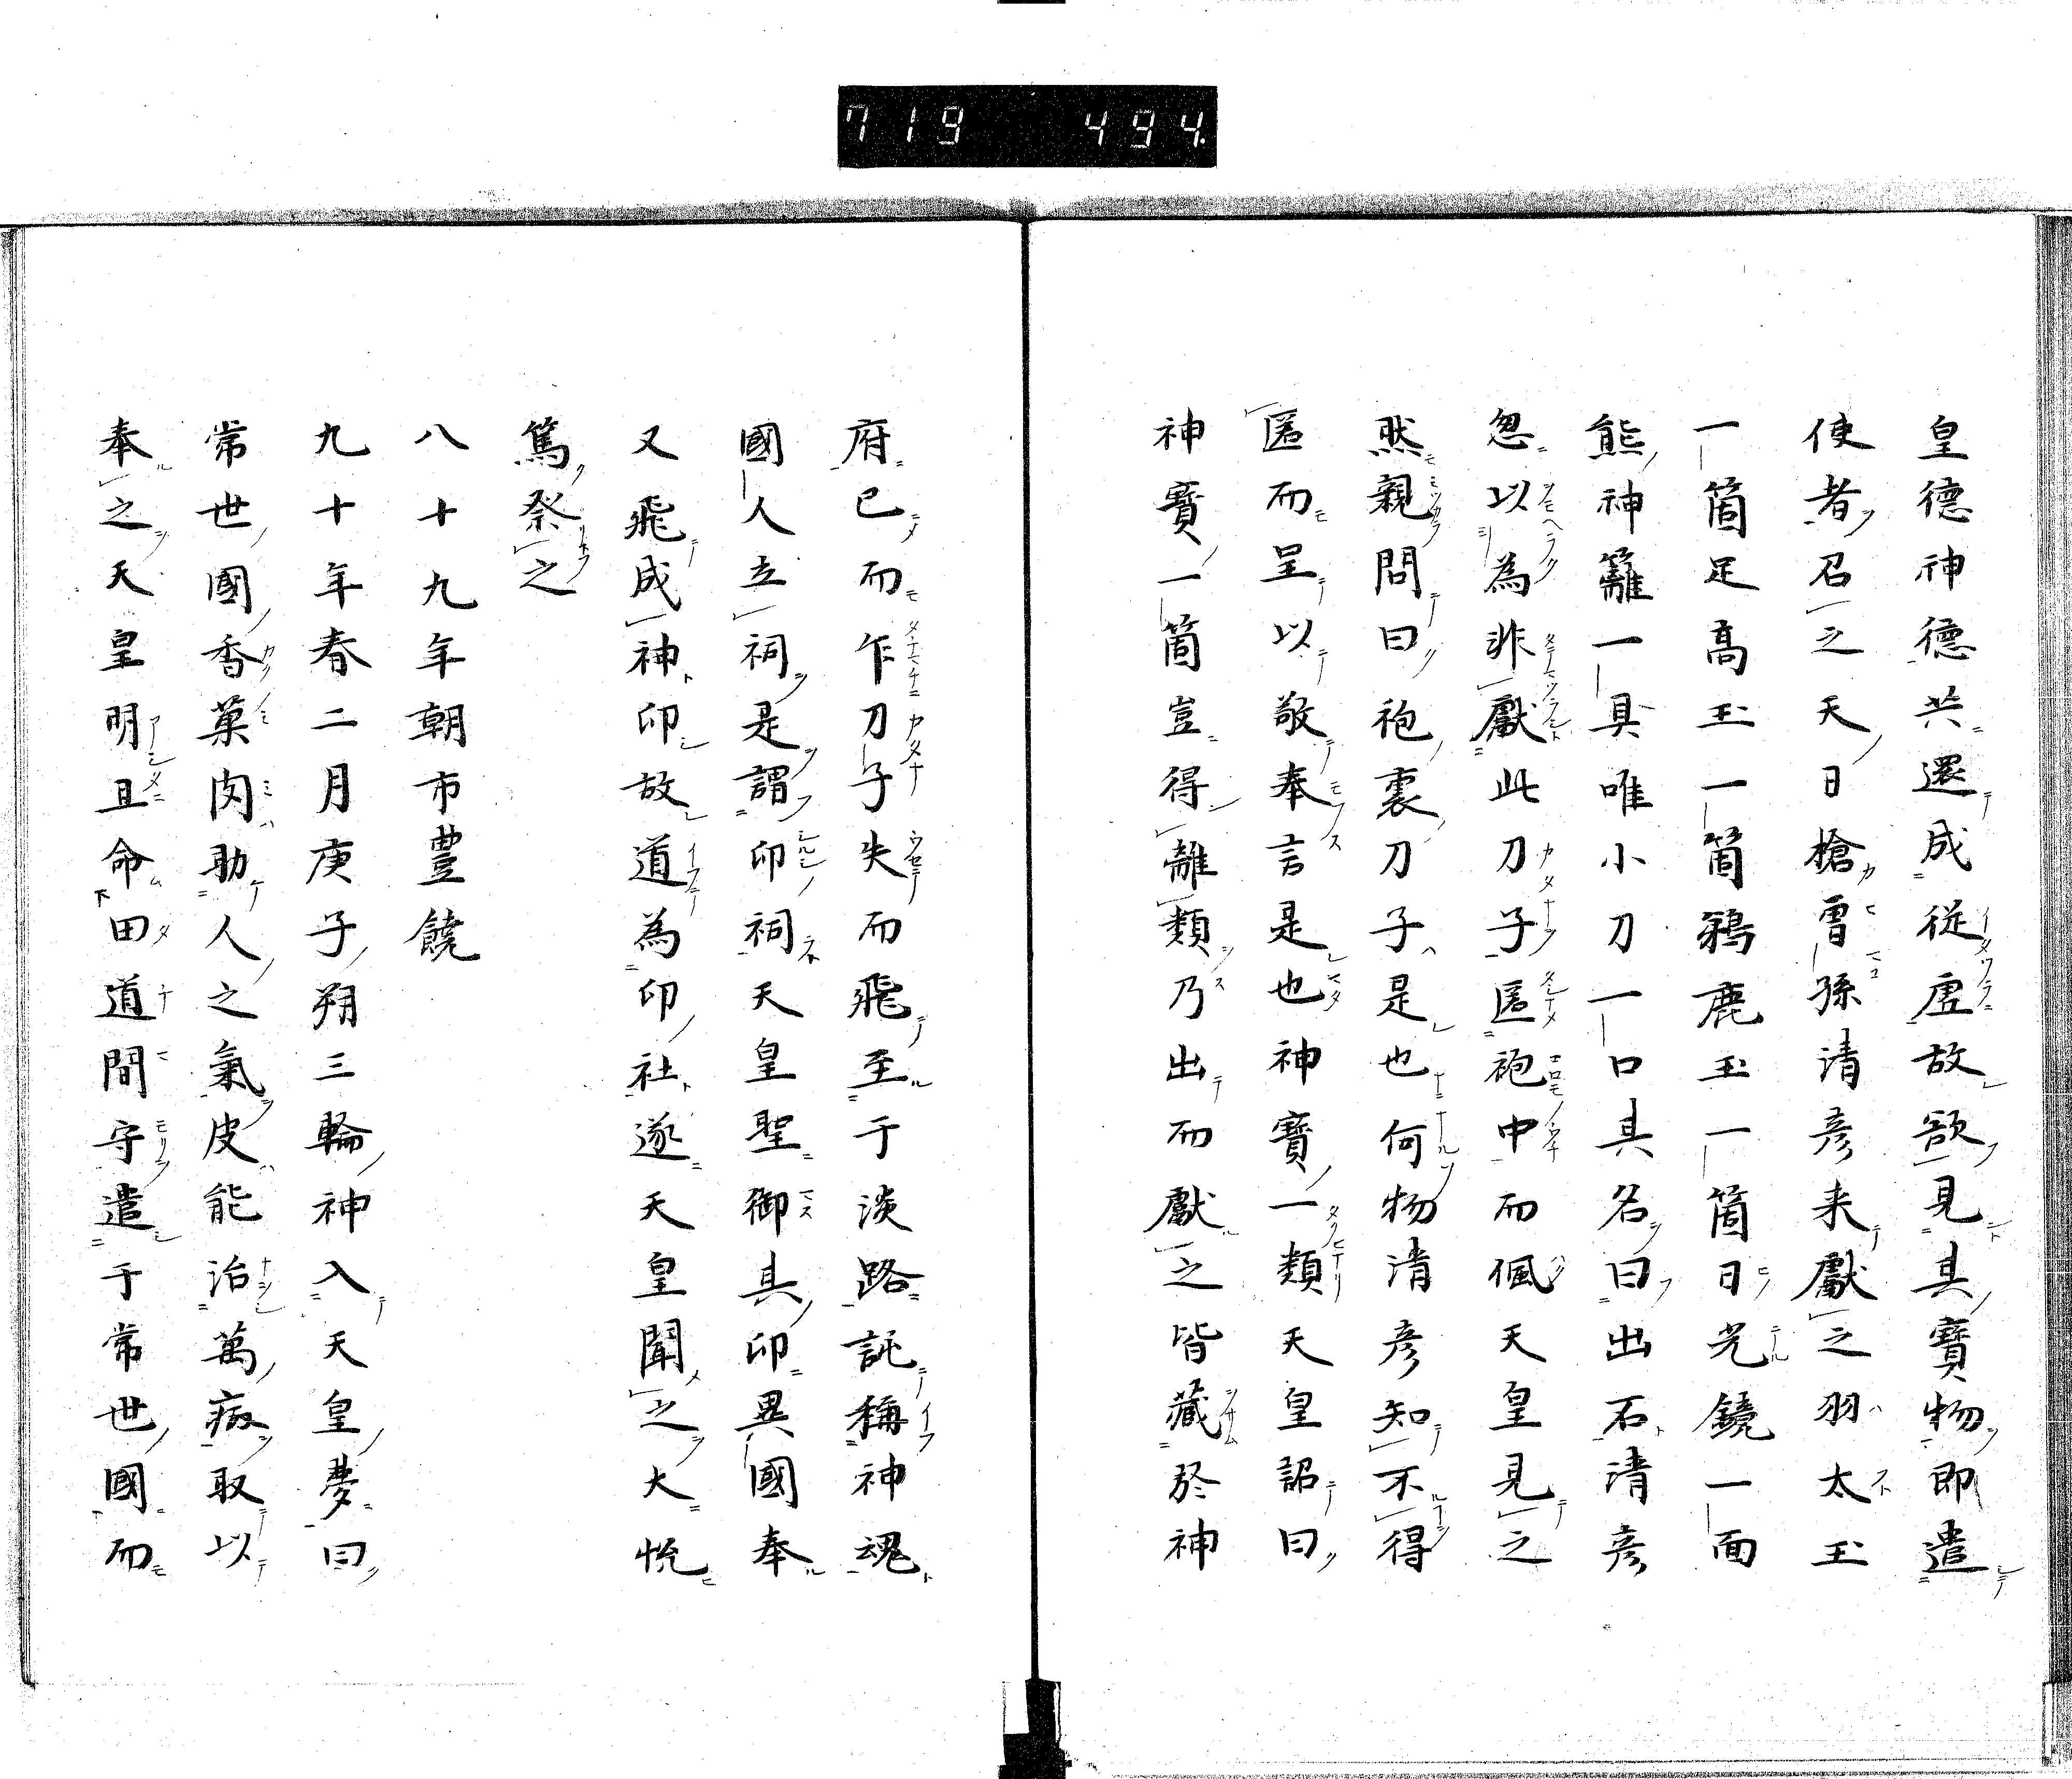 719 494.
皇德神德共還成從虛故欲見其寶物即遣
使者召之天日槍曾孫清彦来獻之羽太玉
一箇足高玉一箇鵜鹿玉一箇日光鏡一面
熊神籬一具唯小刀一口其名曰出石清彦
忽以為非獻此刀子匿袍中而佩天皇見之
然親問曰袍裏刀子是也何物清彦知不得
匿而呈以敬奉言是也神寶一類天皇詔曰
神寶一箇豈得離類乃出而獻之皆藏於神
府已而乍刀子失而飛至于淡路託稱神魂
國人立祠是謂印祠天皇聖御具印異國奉
又飛成神印故道為印社遂天皇聞之大悦
篤祭之
八十九年朝市豊饒
九十年春二月庚子朔三輪神入天皇夢曰
常世國香菓肉助人之氣皮能治萬病取以
奉之天皇明旦命田道間守遣于常世國而